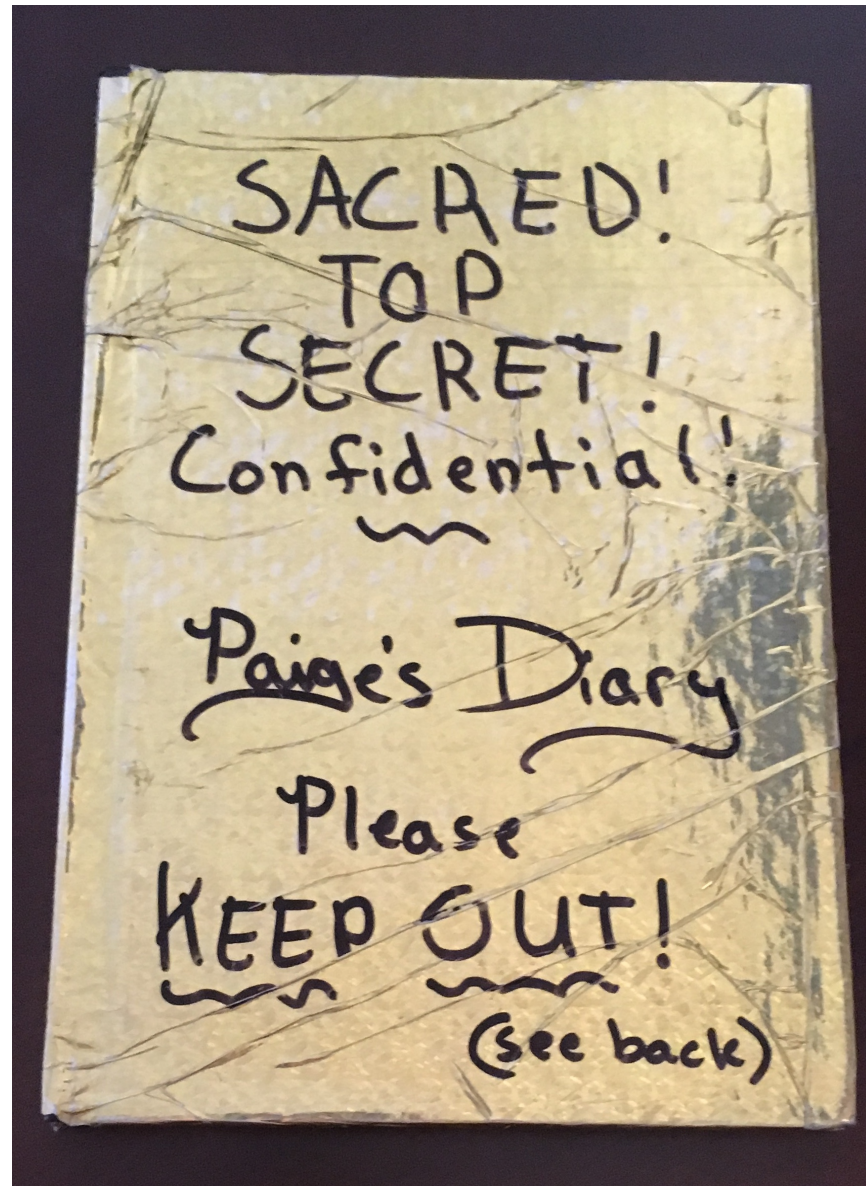 SACRED!
TOP
SECRET!
Confidential!
Paige's Diary
Please
KEEP OUT!
(see back)